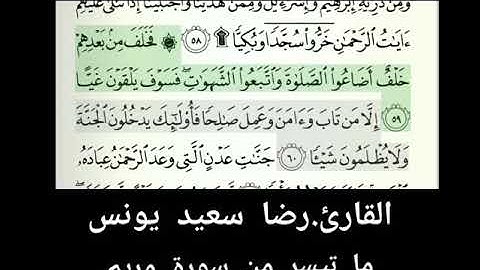 وَمِن ذُرِّيَّةِ إِبْرَٰهِيمَ وَإِسْرَٰٓءِيلَ وَمِمَّنْ هَدَيْنَا وَٱجْتَبَيْنَآ إِذَا تُتْلَىٰ عَلَيْهِمْ
ءَايَٰتُ ٱلرَّحْمَٰنِ خَرُّوا۟ سُجَّدًا وَبُكِيًّا ۩ ٥٨ ۞ فَخَلَفَ مِنۢ بَعْدِهِمْ
خَلْفٌ أَضَاعُوا۟ ٱلصَّلَوٰةَ وَٱتَّبَعُوا۟ ٱلشَّهَوَٰتِ ۖ فَسَوْفَ يَلْقَوْنَ غَيًّا
٥٩ إِلَّا مَن تَابَ وَءَامَنَ وَعَمِلَ صَٰلِحًا فَأُو۟لَٰٓئِكَ يَدْخُلُونَ ٱلْجَنَّةَ
وَلَا يُظْلَمُونَ شَيْـًٔا ٦٠ جَنَّٰتِ عَدْنٍ ٱلَّتِى وَعَدَ ٱلرَّحْمَٰنُ عِبَادَهُۥ
القارئ.رضا سعيد يونس
ما تيسر من سورة مريم